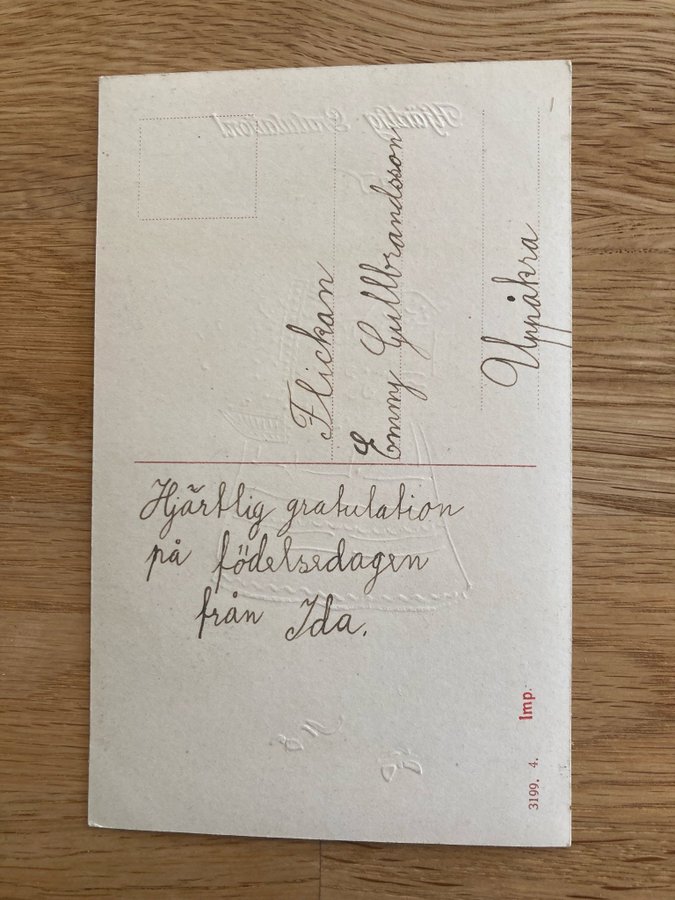 Hjärtlig Gratulation!
Flickan
Emmy Gullbrandsson
Uppåkra
Hjärtlig gratulation
på födelsedagen
från Ida.
3199. 4. Imp.